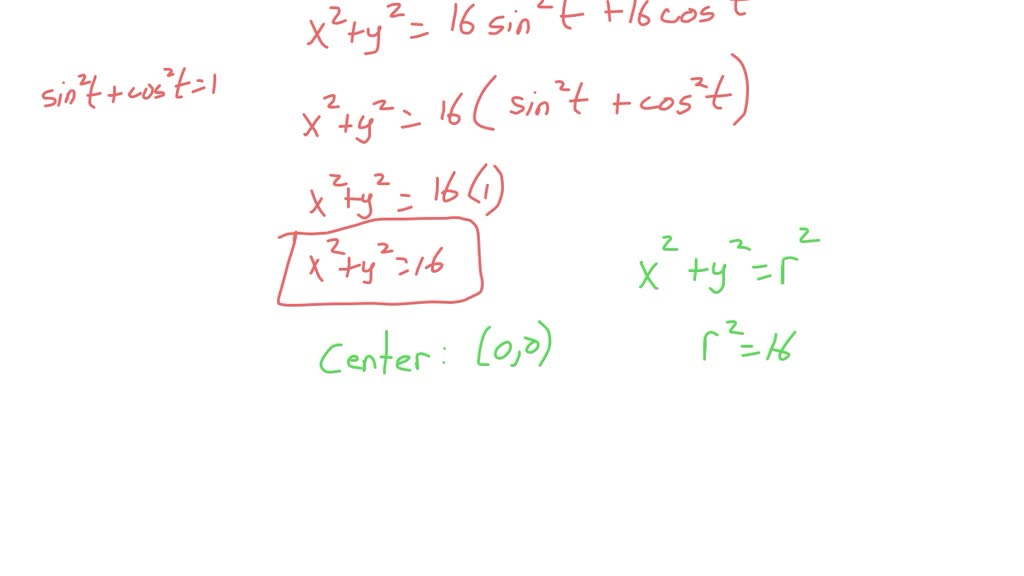 x²+y² = 16 sin²t + 16 cos²t
sin²t + cos²t = 1
x²+y² = 16 ( sin²t + cos²t )
x²+y² = 16 (1)
x²+y² = 16
x² + y² = r²
Center : (0,0)
r² = 16